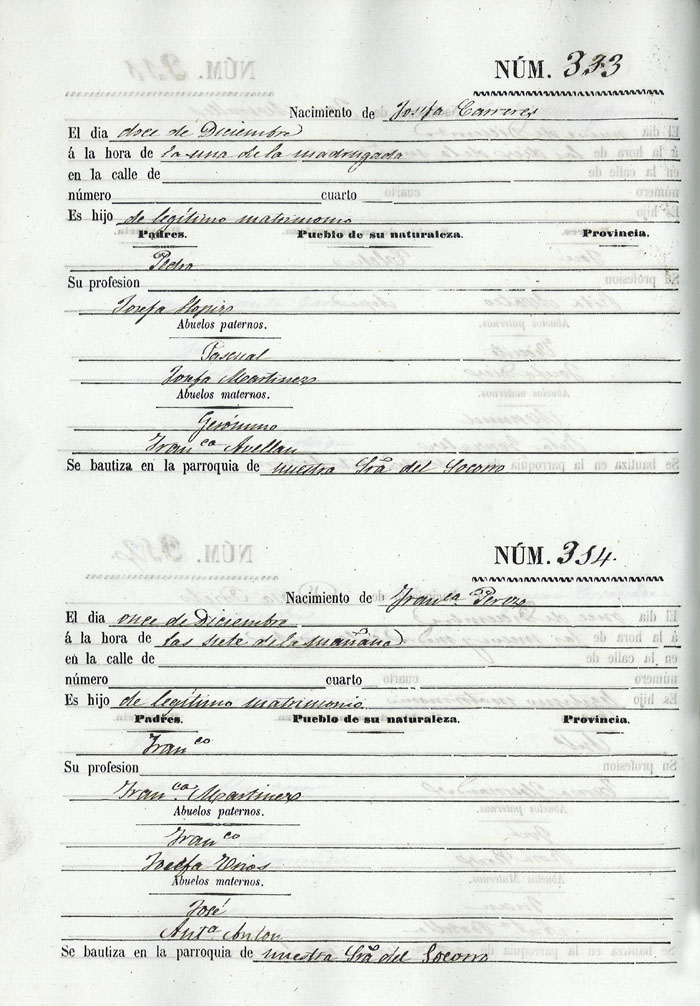 NÚM. 333
Nacimiento de Josefa Carreres
El dia doce de Diciembre
á la hora de la una de la madrugada
en la calle de
número cuarto
Es hijo de legítimo matrimonio
Padres. Pueblo de su naturaleza. Provincia.
Pedro
Su profesion
Josefa Llopis
Abuelos paternos.
Pascual
Josefa Martinez
Abuelos maternos.
Gerónimo
Fran.ca Avellan
Se bautiza en la parroquia de nuestra Sra del Socorro
NÚM. 354
Nacimiento de Franca Perez
El dia once de Diciembre
á la hora de las siete de la mañana
en la calle de
número cuarto
Es hijo de legítimo matrimonio
Padres. Pueblo de su naturaleza. Provincia.
Franco
Su profesion
Fran.ca Martinez
Abuelos paternos.
Franco
Josefa
Abuelos maternos.
José
Anta Anton
Se bautiza en la parroquia de nuestra Sra del Socorro